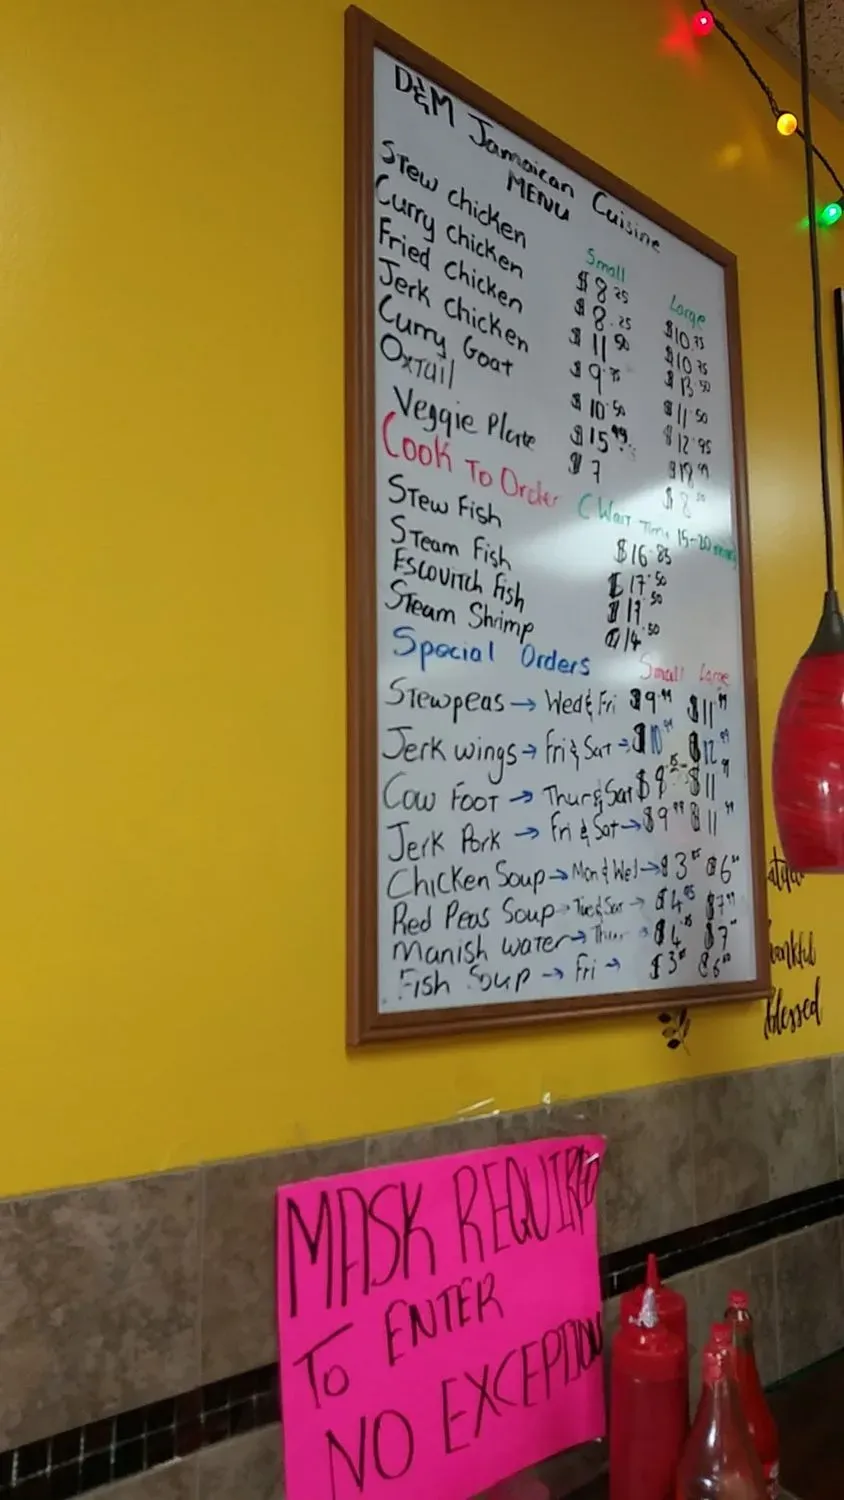 D&M Jamaican Cuisine
MENU
Small Large
Stew chicken $8.25 $10.75
Curry chicken $8.25 $10.75
Fried chicken $11.50 $13.50
Jerk chicken $9.75 $11.50
Curry Goat $10.50 $12.95
Oxtail $15.99 $18.99
Veggie Plate $7 $8.50
Cook To Order (Wait Time 15-20 mins)
Stew Fish $16.85
Steam Fish $17.50
Escovitch fish $17.50
Steam Shrimp $14.50
Special Orders Small Large
Stewpeas → Wed & Fri $9.99 $11.99
Jerk wings → Fri & Sat → $10.99 $12.99
Cow Foot → Thur & Sat $9 $11.99
Jerk Pork → Fri & Sat → $9.99 $11.99
Chicken Soup → Mon & Wed → $3 $6
Red Peas Soup → Tue & Sat → $4 $7.99
Manish water → Thur → $4 $7
Fish Soup → Fri → $3 $6
blessed
MASK REQUIRED
TO ENTER
NO EXCEPTION